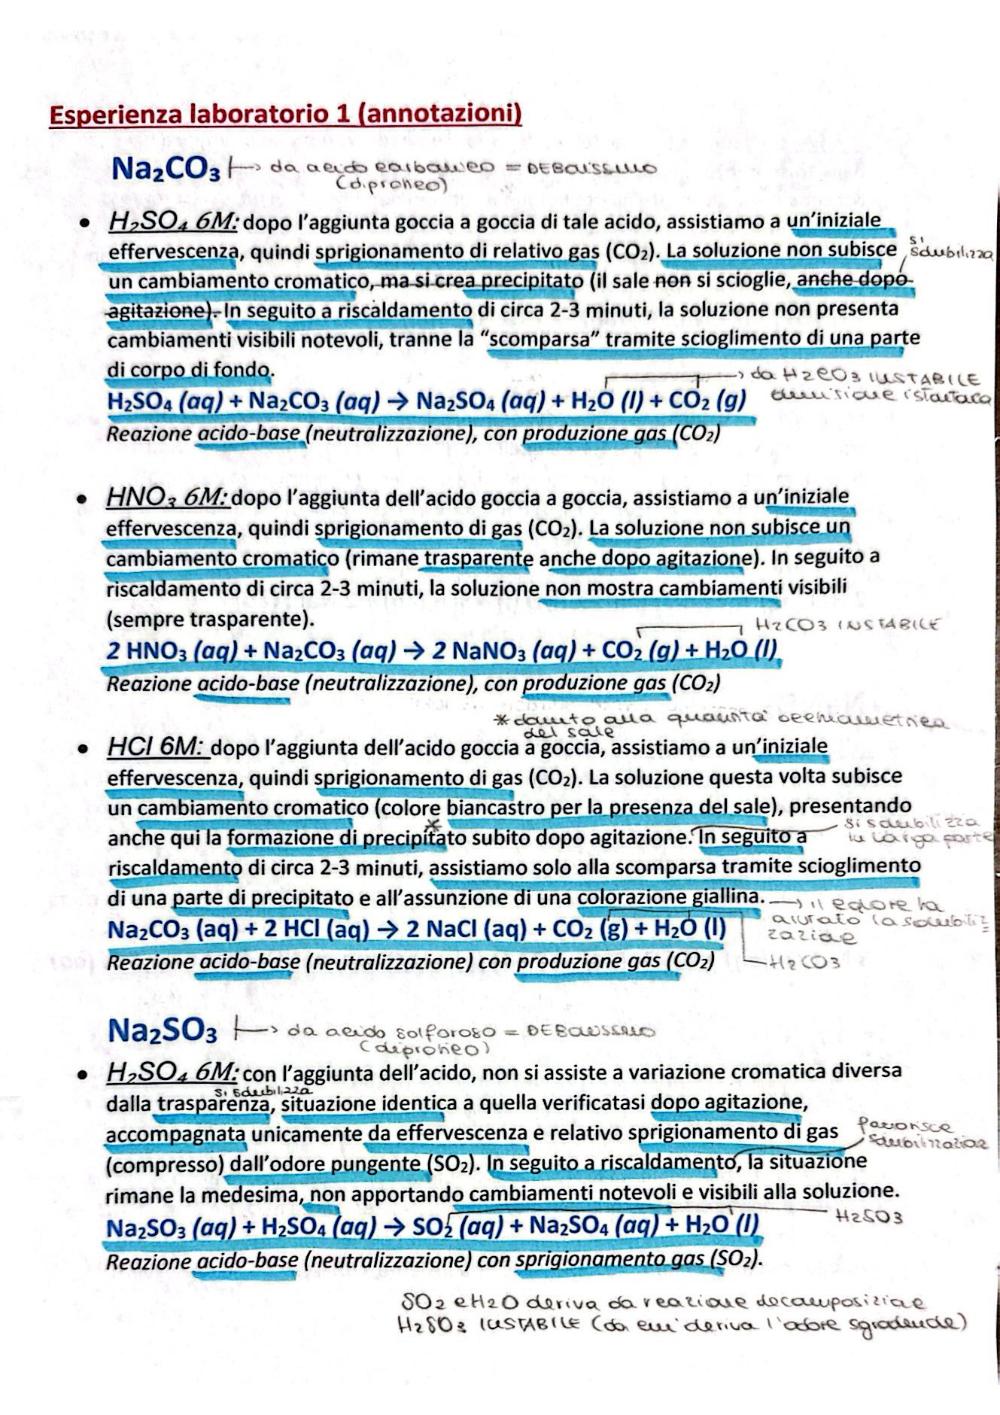 Esperienza laboratorio 1 (annotazioni)
Na₂CO₃ → da acido carbonico = DEBOLISSIMO
(diprotico)
• H₂SO₄ 6M: dopo l'aggiunta goccia a goccia di tale acido, assistiamo a un'iniziale
effervescenza, quindi sprigionamento di relativo gas (CO₂). La soluzione non subisce si solubilizza
un cambiamento cromatico, ma si crea precipitato (il sale non si scioglie, anche dopo
agitazione). In seguito a riscaldamento di circa 2-3 minuti, la soluzione non presenta
cambiamenti visibili notevoli, tranne la "scomparsa" tramite scioglimento di una parte
di corpo di fondo.
→ da H2CO3 INSTABILE
H₂SO₄ (aq) + Na₂CO₃ (aq) → Na₂SO₄ (aq) + H₂O (l) + CO₂ (g)
Reazione acido-base (neutralizzazione), con produzione gas (CO₂)
• HNO₃ 6M: dopo l'aggiunta dell'acido goccia a goccia, assistiamo a un'iniziale
effervescenza, quindi sprigionamento di gas (CO₂). La soluzione non subisce un
cambiamento cromatico (rimane trasparente anche dopo agitazione). In seguito a
riscaldamento di circa 2-3 minuti, la soluzione non mostra cambiamenti visibili
(sempre trasparente).
H2CO3 INSTABILE
2 HNO₃ (aq) + Na₂CO₃ (aq) → 2 NaNO₃ (aq) + CO₂ (g) + H₂O (l)
Reazione acido-base (neutralizzazione), con produzione gas (CO₂)
* dovuto alla quantità stechiometrica
del sale
• HCl 6M: dopo l'aggiunta dell'acido goccia a goccia, assistiamo a un'iniziale
effervescenza, quindi sprigionamento di gas (CO₂). La soluzione questa volta subisce
un cambiamento cromatico (colore biancastro per la presenza del sale), presentando
anche qui la formazione di precipitato* subito dopo agitazione. In seguito a
si solubilizza
in larga parte
riscaldamento di circa 2-3 minuti, assistiamo solo alla scomparsa tramite scioglimento
di una parte di precipitato e all'assunzione di una colorazione giallina.
→ il calore ha
aiutato la solubiliz
zazione
Na₂CO₃ (aq) + 2 HCl (aq) → 2 NaCl (aq) + CO₂ (g) + H₂O (l)
Reazione acido-base (neutralizzazione) con produzione gas (CO₂)
H2CO3
Na₂SO₃ → da acido solforoso = DEBOLISSIMO
(diprotico)
• H₂SO₄ 6M: con l'aggiunta dell'acido, non si assiste a variazione cromatica diversa
si solubilizza
dalla trasparenza, situazione identica a quella verificatasi dopo agitazione,
accompagnata unicamente da effervescenza e relativo sprigionamento di gas
favorisce
solubilizzazione
(compresso) dall'odore pungente (SO₂). In seguito a riscaldamento, la situazione
rimane la medesima, non apportando cambiamenti notevoli e visibili alla soluzione.
H2SO3
Na₂SO₃ (aq) + H₂SO₄ (aq) → SO₂ (aq) + Na₂SO₄ (aq) + H₂O (l)
Reazione acido-base (neutralizzazione) con sprigionamento gas (SO₂).
SO2 e H2O deriva da reazione decomposizione
H2SO3 INSTABILE (da cui deriva l'odore sgradevole)